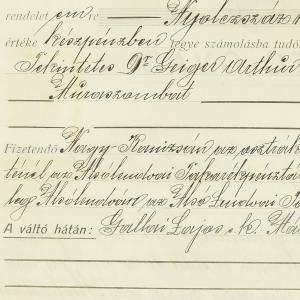 rendelet em re Nyolczszáz
értéke készpénzben tegye számolásba tudó
Tekintetes Dr Geiger Arthur
Muraszombat
Fizetendő Nagy Kanizsán az osztrák
tünél, az Alsólendvai Takarékpénztá
leg Alsólendván, az Alsó Lendvai Ta
A váltó hátán: Gallai Lajos s.k.